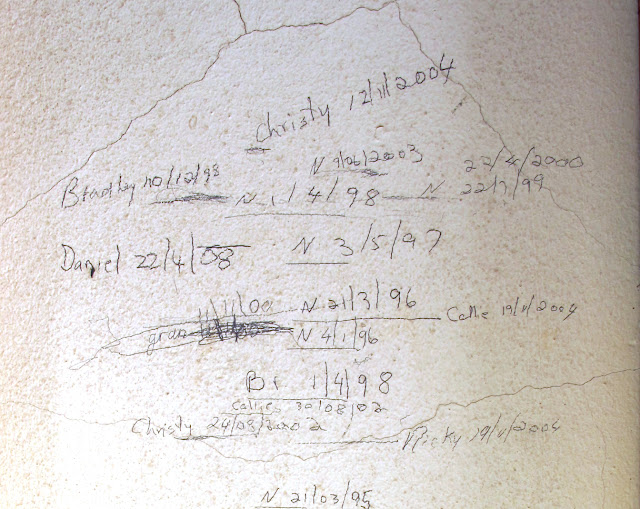 Christy 12/11/2004
N 9/06/2003
22/4/2000
Bradley 10/12/98
N 1/4/98
N 22/7/99
Daniel 22/4/08
N 3/5/97
1/1/00
N 21/3/96
Callie 19/11/2004
gran
N 4/1/96
B. 1/4/98
Callies 30/08/02
Christy 24/08/2002
Nicky 19/11/2004
N 21/03/95